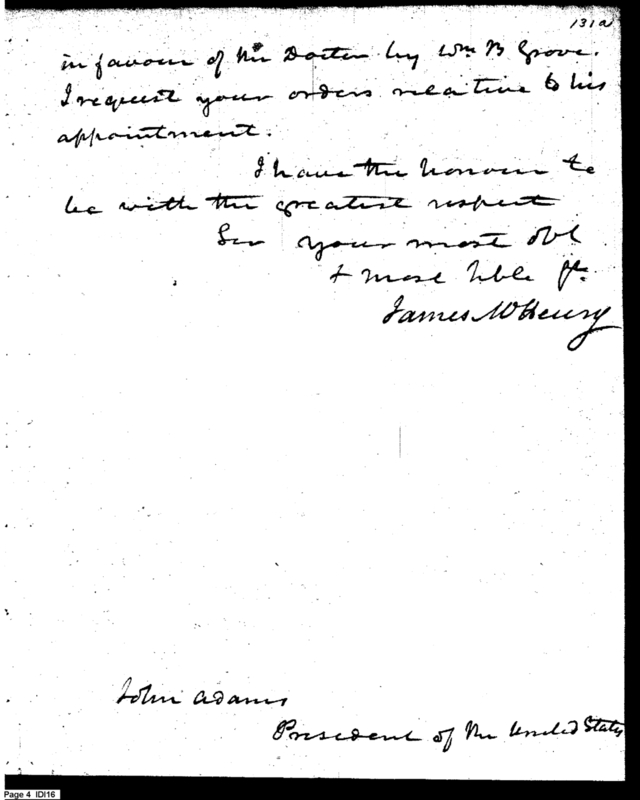 131a
in favour of the Doctor by Wm B Grove.
I request your orders relative to his
appointment.
I have the honour to
be with the greatest respect
Sir your most obt
+ most hble
James McHenry
John Adams
President of the United States
Page 4 IDI16